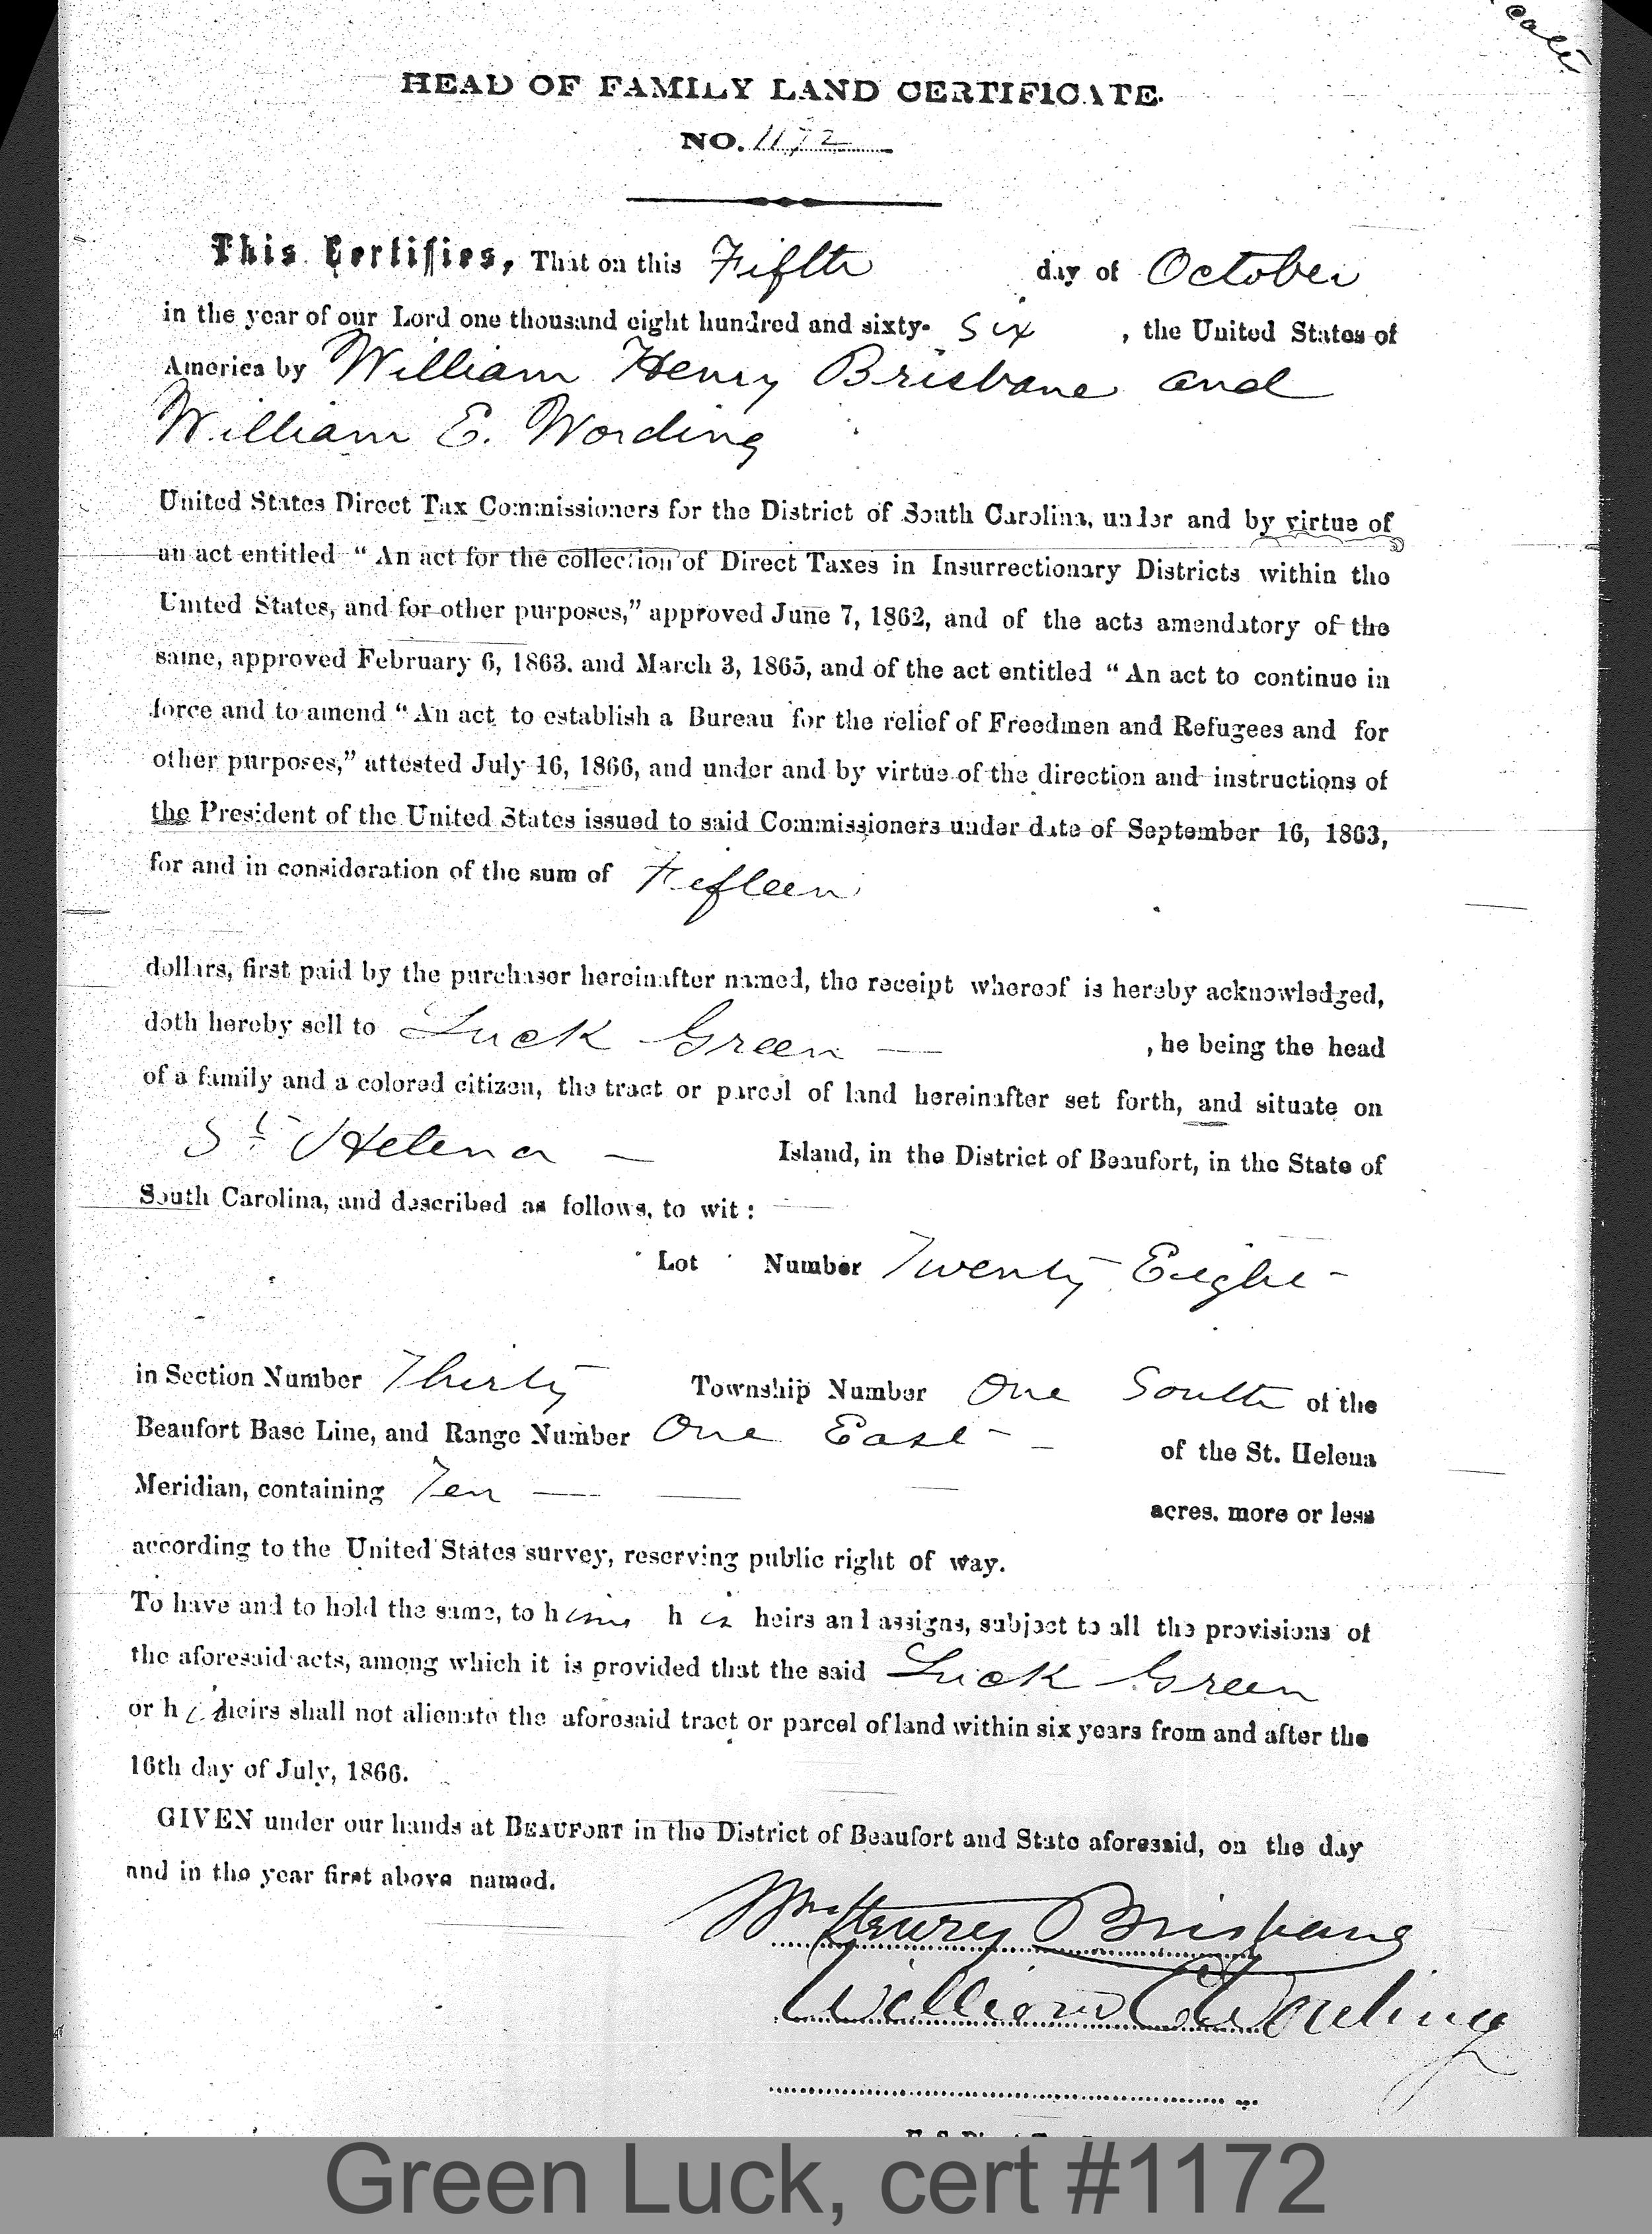 HEAD OF FAMILY LAND CERTIFICATE.
NO. 1172
This Certifies, That on this Fifth day of October
in the year of our Lord one thousand eight hundred and sixty-six, the United States of
America by William Henry Brisbane and
William E. Wording
United States Direct Tax Commissioners for the District of South Carolina, under and by virtue of
an act entitled "An act for the collection of Direct Taxes in Insurrectionary Districts within the
United States, and for other purposes," approved June 7, 1862, and of the acts amendatory of the
same, approved February 6, 1863. and March 3, 1865, and of the act entitled "An act to continue in
force and to amend "An act to establish a Bureau for the relief of Freedmen and Refugees and for
other purposes," attested July 16, 1866, and under and by virtue of the direction and instructions of
the President of the United States issued to said Commissioners under date of September 16, 1863,
for and in consideration of the sum of Fifteen
dollars, first paid by the purchaser hereinafter named, the receipt whereof is hereby acknowledged,
doth hereby sell to Luck Green — , he being the head
of a family and a colored citizen, the tract or parcel of land hereinafter set forth, and situate on
St Helena — Island, in the District of Beaufort, in the State of
South Carolina, and described as follows, to wit :
Lot Number Twenty Eight -
in Section Number Thirty Township Number One South of the
Beaufort Base Line, and Range Number One East - - of the St. Helena
Meridian, containing Ten — — — acres. more or less
according to the United States survey, reserving public right of way.
To have and to hold the same, to him his heirs and assigns, subject to all the provisions of
the aforesaid acts, among which it is provided that the said Luck Green
or his heirs shall not alienate the aforesaid tract or parcel of land within six years from and after the
16th day of July, 1866.
GIVEN under our hands at BEAUFORT in the District of Beaufort and State aforesaid, on the day
and in the year first above named.
Wm Henry Brisbane
William E. Wording
Green Luck, cert #1172